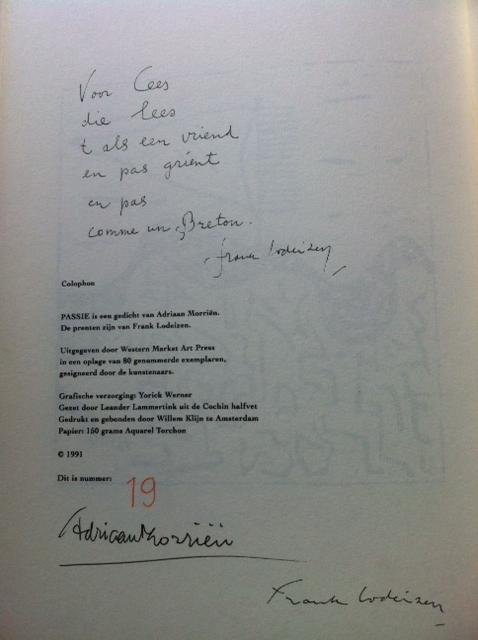 Voor Cees
die lees
t als een vriend
en pas grient
en pas
comme un Breton.
Frank Lodeizen
Colophon
PASSIE is een gedicht van Adriaan Morriën.
De prenten zijn van Frank Lodeizen.
Uitgegeven door Western Market Art Press
in een oplage van 80 genummerde exemplaren,
gesigneerd door de kunstenaars.
Grafische verzorging: Yorick Werner
Gezet door Leander Lammertink uit de Cochin halfvet
Gedrukt en gebonden door Willem Klijn te Amsterdam
Papier: 160 grams Aquarel Torchon
© 1991
Dit is nummer: 19
Adriaan Morriën
Frank Lodeizen